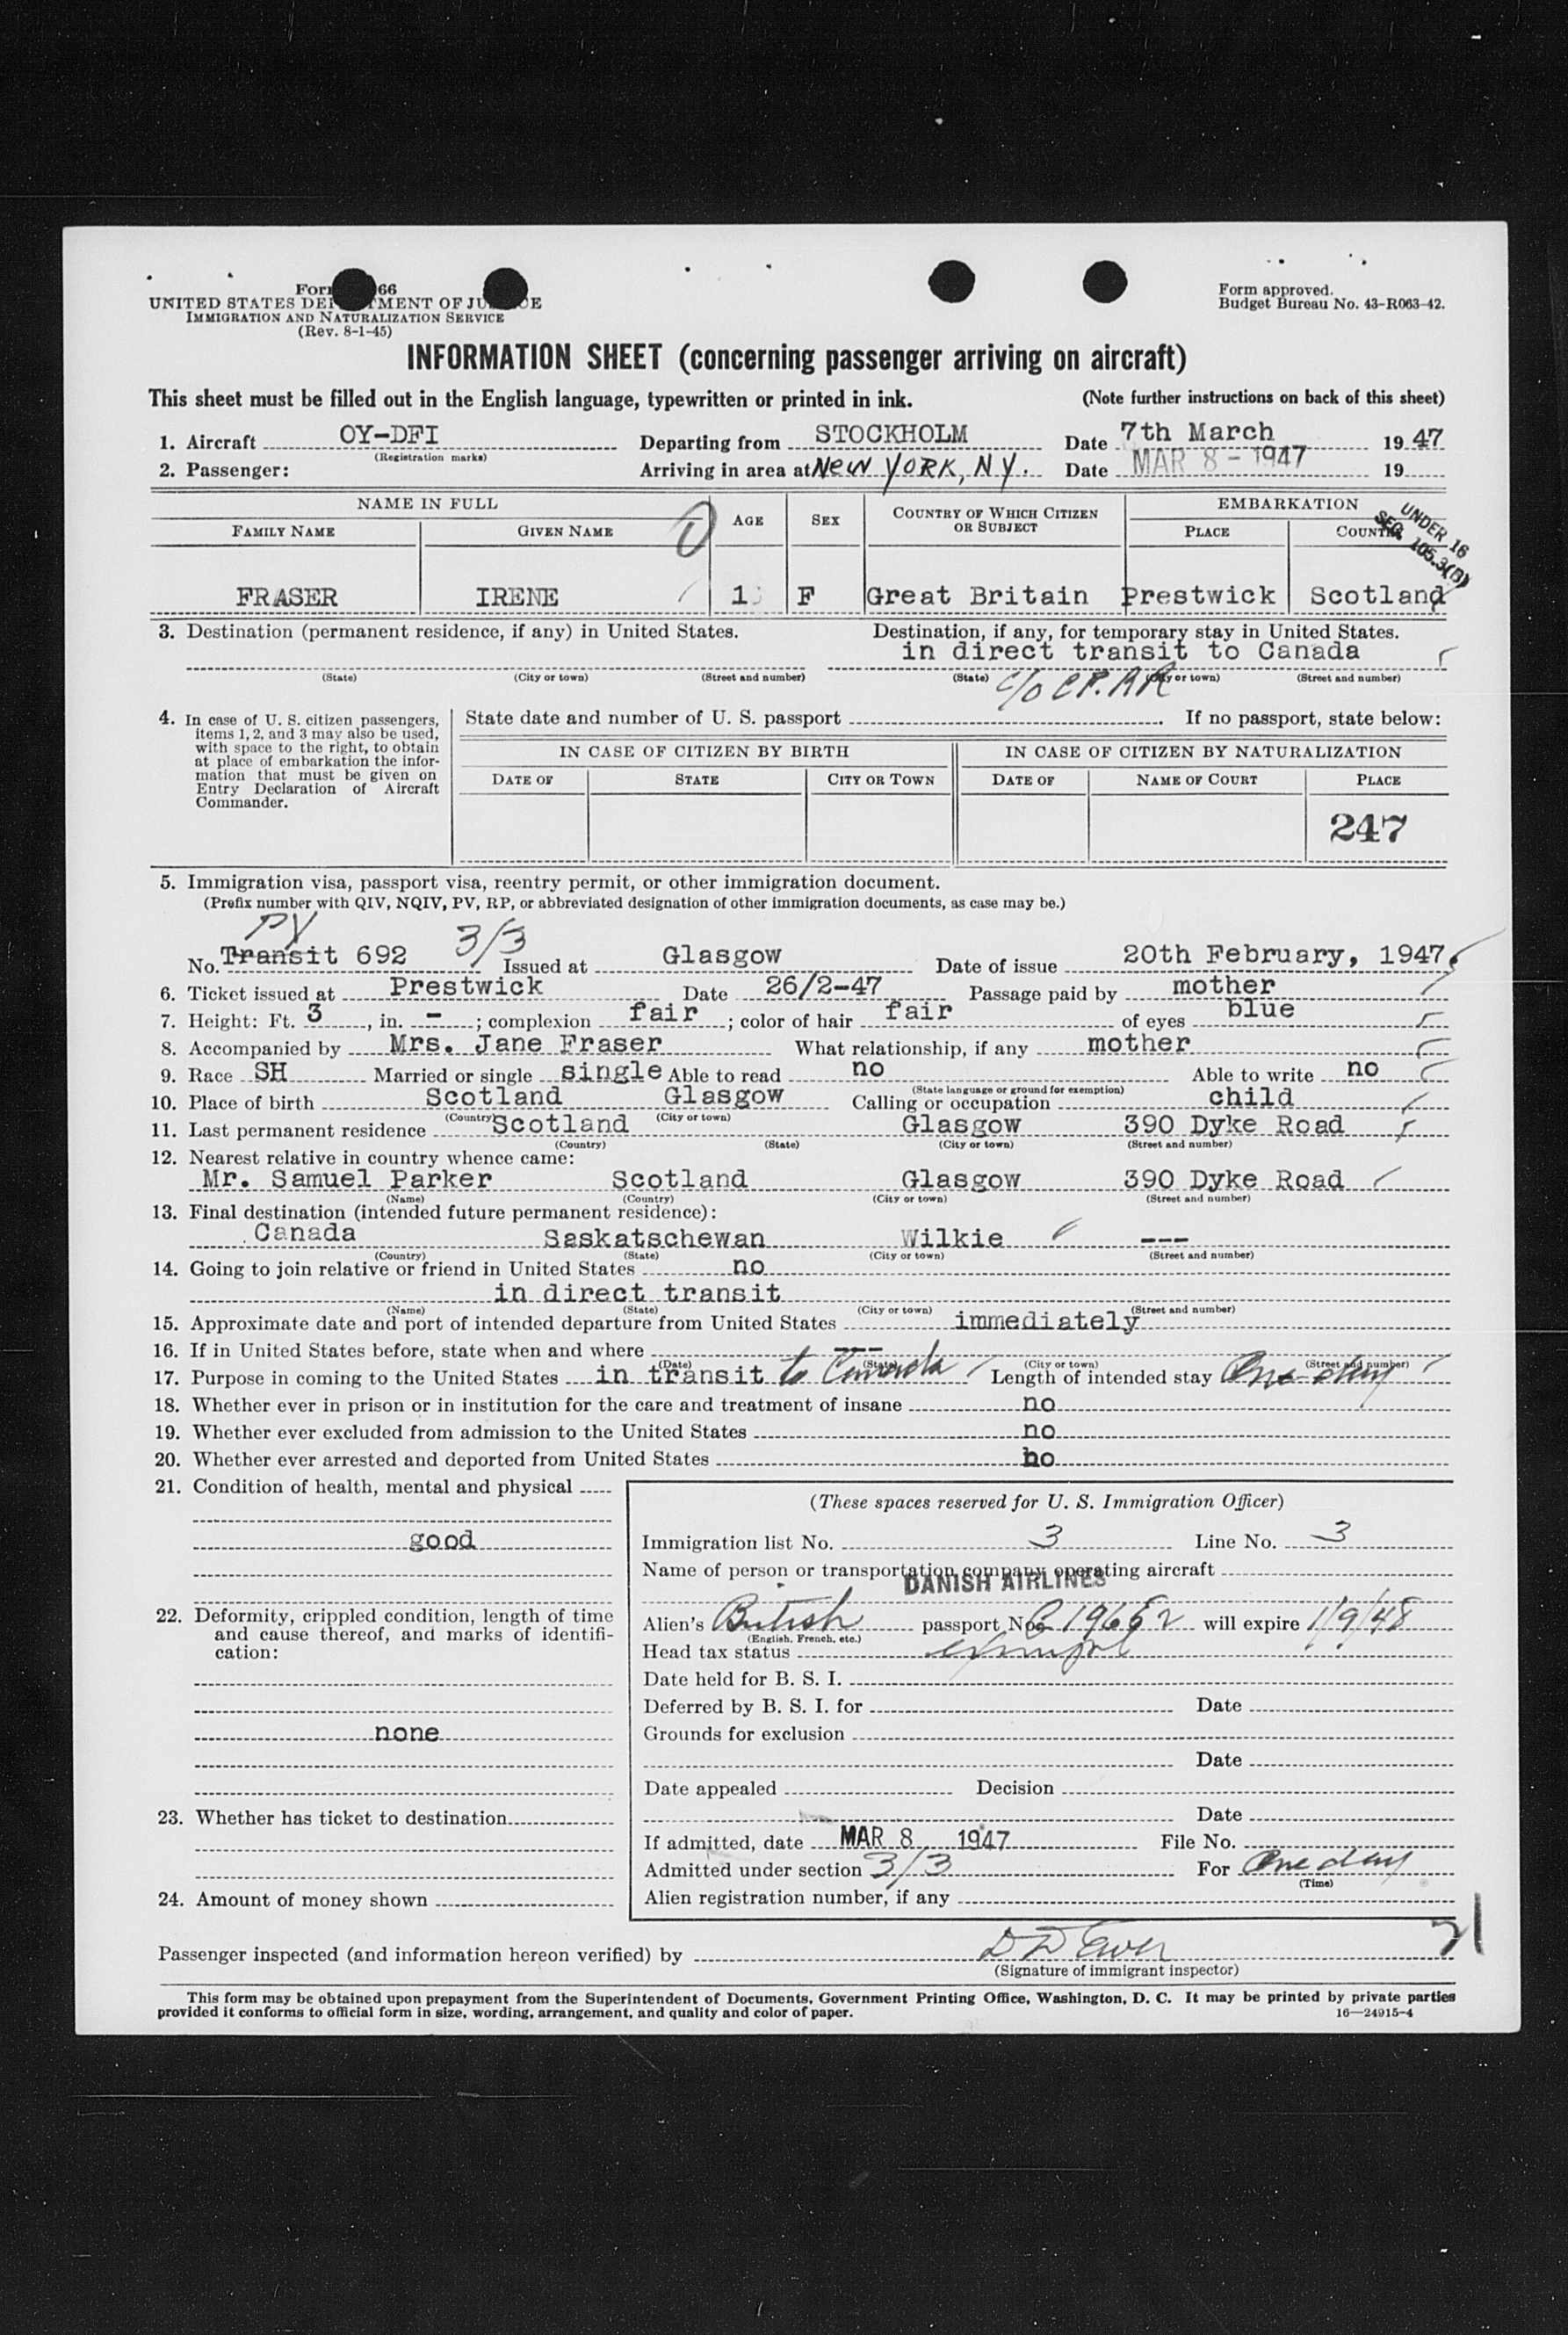 Form 66
UNITED STATES DEPARTMENT OF JUSTICE
IMMIGRATION AND NATURALIZATION SERVICE
(Rev. 8-1-45)
Form approved.
Budget Bureau No. 43-R063-42.
INFORMATION SHEET (concerning passenger arriving on aircraft)
This sheet must be filled out in the English language, typewritten or printed in ink. (Note further instructions on back of this sheet)
1. Aircraft OY-DFI Departing from STOCKHOLM Date 7th March 1947
(Registration marks)
2. Passenger: Arriving in area at New YORK, N Y. Date MAR 8 - 1947 19
NAME IN FULL AGE SEX COUNTRY OF WHICH CITIZEN OR SUBJECT EMBARKATION
FAMILY NAME GIVEN NAME PLACE COUNTRY
UNDER 16
SEC. 105.3(B)
FRASER IRENE 1 F Great Britain Prestwick Scotland
3. Destination (permanent residence, if any) in United States. Destination, if any, for temporary stay in United States.
in direct transit to Canada
(State) (City or town) (Street and number) (State) (City or town) (Street and number)
c/o C.P.RR
4. In case of U. S. citizen passengers, items 1, 2, and 3 may also be used, with space to the right, to obtain at place of embarkation the information that must be given on Entry Declaration of Aircraft Commander.
State date and number of U. S. passport . If no passport, state below:
IN CASE OF CITIZEN BY BIRTH IN CASE OF CITIZEN BY NATURALIZATION
DATE OF STATE CITY OR TOWN DATE OF NAME OF COURT PLACE
247
5. Immigration visa, passport visa, reentry permit, or other immigration document.
(Prefix number with QIV, NQIV, PV, RP, or abbreviated designation of other immigration documents, as case may be.)
PV 3/3
No. Transit 692 Issued at Glasgow Date of issue 20th February, 1947
6. Ticket issued at Prestwick Date 26/2-47 Passage paid by mother
7. Height: Ft. 3, in. - ; complexion fair ; color of hair fair of eyes blue
8. Accompanied by Mrs. Jane Fraser What relationship, if any mother
9. Race SH Married or single single Able to read no Able to write no
(State language or ground for exemption)
10. Place of birth Scotland Glasgow Calling or occupation child
(Country) (City or town)
11. Last permanent residence Scotland Glasgow 390 Dyke Road
(Country) (State) (City or town) (Street and number)
12. Nearest relative in country whence came:
Mr. Samuel Parker Scotland Glasgow 390 Dyke Road
(Name) (Country) (City or town) (Street and number)
13. Final destination (intended future permanent residence):
Canada Saskatschewan Wilkie ---
(Country) (State) (City or town) (Street and number)
14. Going to join relative or friend in United States no
in direct transit
(Name) (State) (City or town) (Street and number)
15. Approximate date and port of intended departure from United States immediately
16. If in United States before, state when and where ---
(Date) (State) (City or town) (Street and number)
17. Purpose in coming to the United States in transit to Canada Length of intended stay One day
18. Whether ever in prison or in institution for the care and treatment of insane no
19. Whether ever excluded from admission to the United States no
20. Whether ever arrested and deported from United States no
21. Condition of health, mental and physical
good
22. Deformity, crippled condition, length of time and cause thereof, and marks of identification:
none
23. Whether has ticket to destination
24. Amount of money shown
(These spaces reserved for U. S. Immigration Officer)
Immigration list No. 3 Line No. 3
Name of person or transportation company operating aircraft
DANISH AIRLINES
Alien's British passport No. C 19652 will expire 1/9/48
(English, French, etc.)
Head tax status exempt
Date held for B. S. I.
Deferred by B. S. I. for Date
Grounds for exclusion
Date
Date appealed Decision
Date
If admitted, date MAR 8 1947 File No.
Admitted under section 3/3 For One day
(Time)
Alien registration number, if any
Passenger inspected (and information hereon verified) by
(Signature of immigrant inspector)
This form may be obtained upon prepayment from the Superintendent of Documents, Government Printing Office, Washington, D. C. It may be printed by private parties
provided it conforms to official form in size, wording, arrangement, and quality and color of paper. 16—24915-4